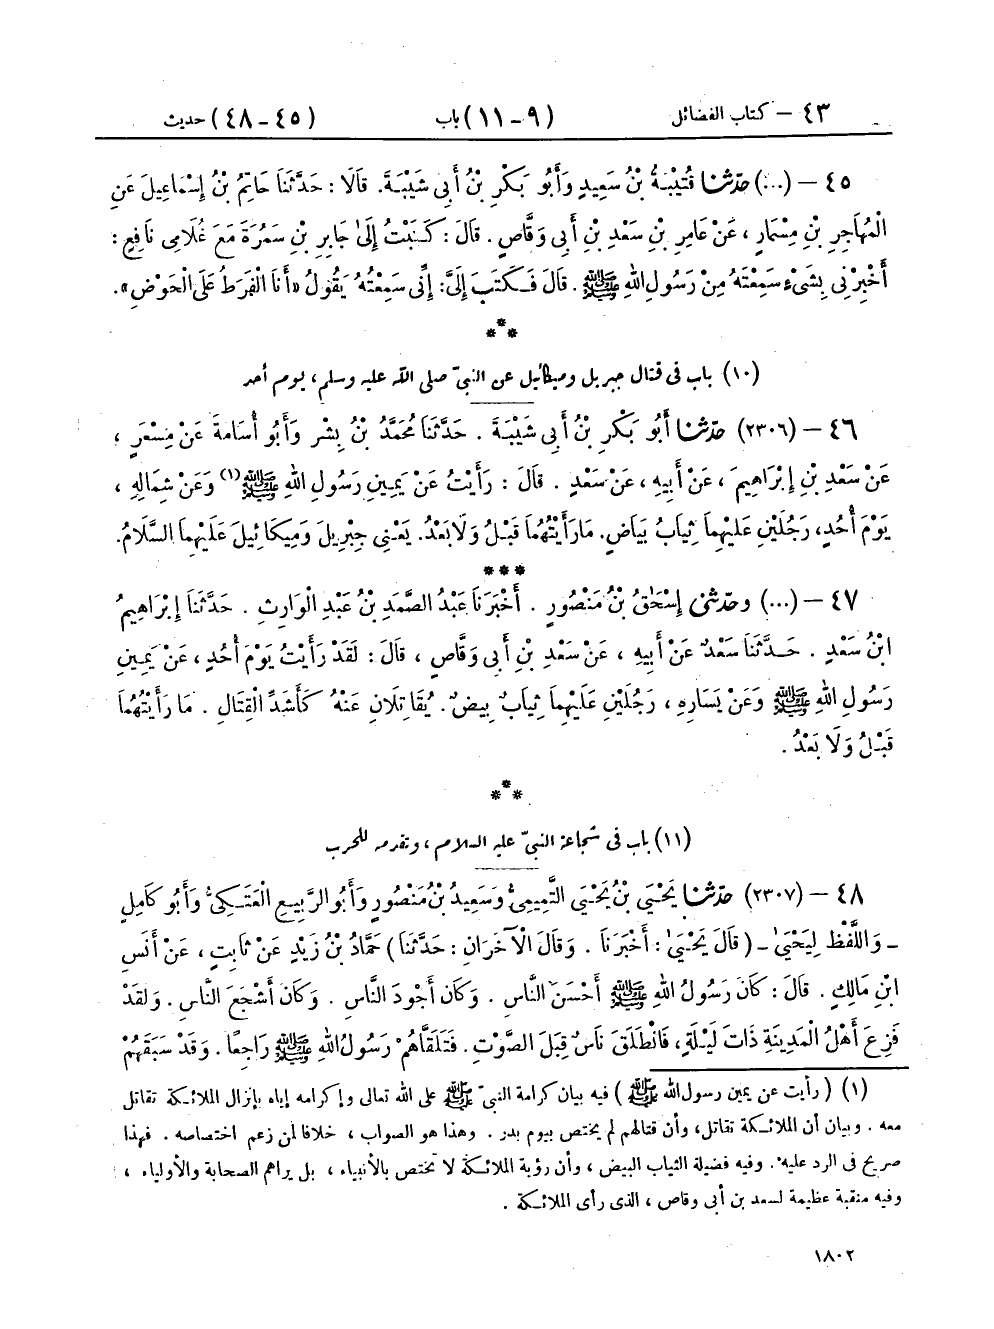 ٤٣ – كتاب الفضائل (٩ – ١١) باب (٤٥ – ٤٨) حديث
٤٥ – (...) حَدَّثَنَا قُتَيْبَةُ بْنُ سَعِيدٍ وَأَبُو بَكْرِ بْنُ أَبِي شَيْبَةَ. قَالَا : حَدَّثَنَا حَاتِمُ بْنُ إِسْمَاعِيلَ عَنِ
الْمُهَاجِرِ بْنِ مِسْمَارٍ ، عَنْ عَامِرِ بْنِ سَعْدِ بْنِ أَبِي وَقَّاصٍ . قَالَ : كَتَبْتُ إِلَىٰ جَابِرِ بْنِ سَمُرَةَ مَعَ غُلَامِي نَافِعٍ :
أَخْبِرْنِي بِشَيْءٍ سَمِعْتَهُ مِنْ رَسُولِ اللهِ ﷺ . قَالَ فَكَتَبَ إِلَيَّ : إِنِّي سَمِعْتُهُ يَقُولُ «أَنَا الْفَرَطُ عَلَى الْحَوْضِ».
***
(١٠) باب في قتال جبريل وميكائيل عن النبيّ صلى الله عليه وسلم ، يوم أحد
٤٦ – (٢٣٠٦) حَدَّثَنَا أَبُو بَكْرِ بْنُ أَبِي شَيْبَةَ . حَدَّثَنَا مُحَمَّدُ بْنُ بِشْرٍ وَأَبُو أُسَامَةَ عَنْ مِسْعَرٍ ،
عَنْ سَعْدِ بْنِ إِبْرَاهِيمَ ، عَنْ أَبِيهِ ، عَنْ سَعْدٍ . قَالَ : رَأَيْتُ عَنْ يَمِينِ رَسُولِ اللهِ ﷺ (١) وَعَنْ شِمَالِهِ ،
يَوْمَ أُحُدٍ، رَجُلَيْنِ عَلَيْهِمَا ثِيَابُ بَيَاضٍ. مَا رَأَيْتُهُمَا قَبْلُ وَلَا بَعْدُ. يَعْنِي جِبْرِيلَ وَمِيكَائِيلَ عَلَيْهِمَا السَّلَامُ.
***
٤٧ – (...) وحَدَّثَنِي إِسْحَٰقُ بْنُ مَنْصُورٍ . أَخْبَرَنَا عَبْدُ الصَّمَدِ بْنُ عَبْدِ الْوَارِثِ . حَدَّثَنَا إِبْرَاهِيمُ
ابْنُ سَعْدٍ . حَدَّثَنَا سَعْدٌ عَنْ أَبِيهِ ، عَنْ سَعْدِ بْنِ أَبِي وَقَّاصٍ ، قَالَ : لَقَدْ رَأَيْتُ يَوْمَ أُحُدٍ ، عَنْ يَمِينِ
رَسُولِ اللهِ ﷺ وَعَنْ يَسَارِهِ ، رَجُلَيْنِ عَلَيْهِمَا ثِيَابٌ بِيضٌ . يُقَاتِلَانِ عَنْهُ كَأَشَدِّ الْقِتَالِ . مَا رَأَيْتُهُمَا
قَبْلُ وَلَا بَعْدُ .
***
(١١) باب في شجاعة النبيّ عليه السلام ، وتقدمه للحرب
٤٨ – (٢٣٠٧) حَدَّثَنَا يَحْيَىٰ بْنُ يَحْيَى التَّمِيمِيُّ وَسَعِيدُ بْنُ مَنْصُورٍ وَأَبُو الرَّبِيعِ الْعَتَكِيُّ وَأَبُو كَامِلٍ
– وَاللَّفْظُ لِيَحْيَىٰ – (قَالَ يَحْيَىٰ : أَخْبَرَنَا . وَقَالَ الْآخَرَانِ : حَدَّثَنَا) حَمَّادُ بْنُ زَيْدٍ عَنْ ثَابِتٍ ، عَنْ أَنَسِ
ابْنِ مَالِكٍ . قَالَ : كَانَ رَسُولُ اللهِ ﷺ أَحْسَنَ النَّاسِ . وَكَانَ أَجْوَدَ النَّاسِ . وَكَانَ أَشْجَعَ النَّاسِ . وَلَقَدْ
فَزِعَ أَهْلُ الْمَدِينَةِ ذَاتَ لَيْلَةٍ ، فَانْطَلَقَ نَاسٌ قِبَلَ الصَّوْتِ . فَتَلَقَّاهُمْ رَسُولُ اللهِ ﷺ رَاجِعًا . وَقَدْ سَبَقَهُمْ
(١) (رأيت عن يمين رسول الله ﷺ) فيه بيان كرامة النبيّ ﷺ على الله تعالى وإكرامه إياه بإنزال الملائكة تقاتل
معه . وبيان أن الملائكة تقاتل، وأن قتالهم لم يختص بيوم بدر . وهذا هو الصواب ، خلافا لمن زعم اختصاصه . فهذا
صريح في الرد عليه . وفيه فضيلة الثياب البيض ، وأن رؤية الملائكة لا تختص بالأنبياء ، بل يراهم الصحابة والأولياء ،
وفيه منقبة عظيمة لسعد بن أبي وقاص ، الذي رأى الملائكة .
١٨٠٢